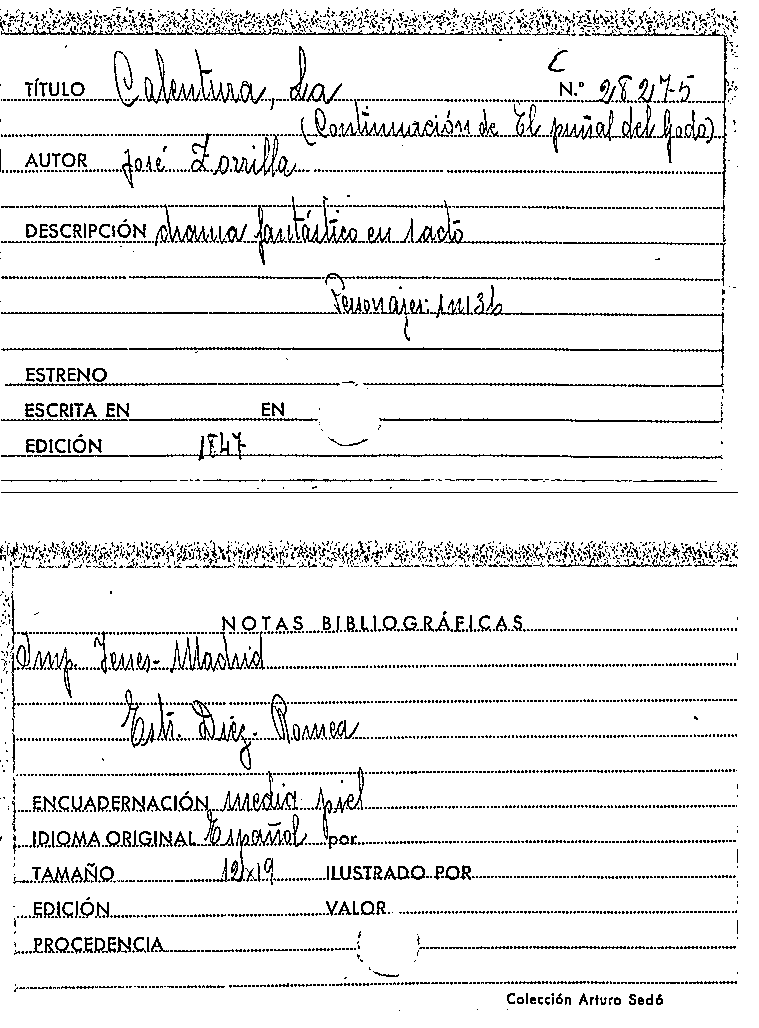 C
TÍTULO Calentura, La N.º 28275
(Continuación de El puñal del godo)
AUTOR José Zorrilla
DESCRIPCIÓN drama fantástico en 1 acto
Personajes: 1m 3h
ESTRENO
ESCRITA EN EN
EDICIÓN 1847
NOTAS BIBLIOGRÁFICAS
Imp. Yenes - Madrid
Estr. Díez - Romea
ENCUADERNACIÓN media piel
IDIOMA ORIGINAL Español por
TAMAÑO 12x19 ILUSTRADO POR
EDICIÓN VALOR
PROCEDENCIA
Colección Arturo Sedó